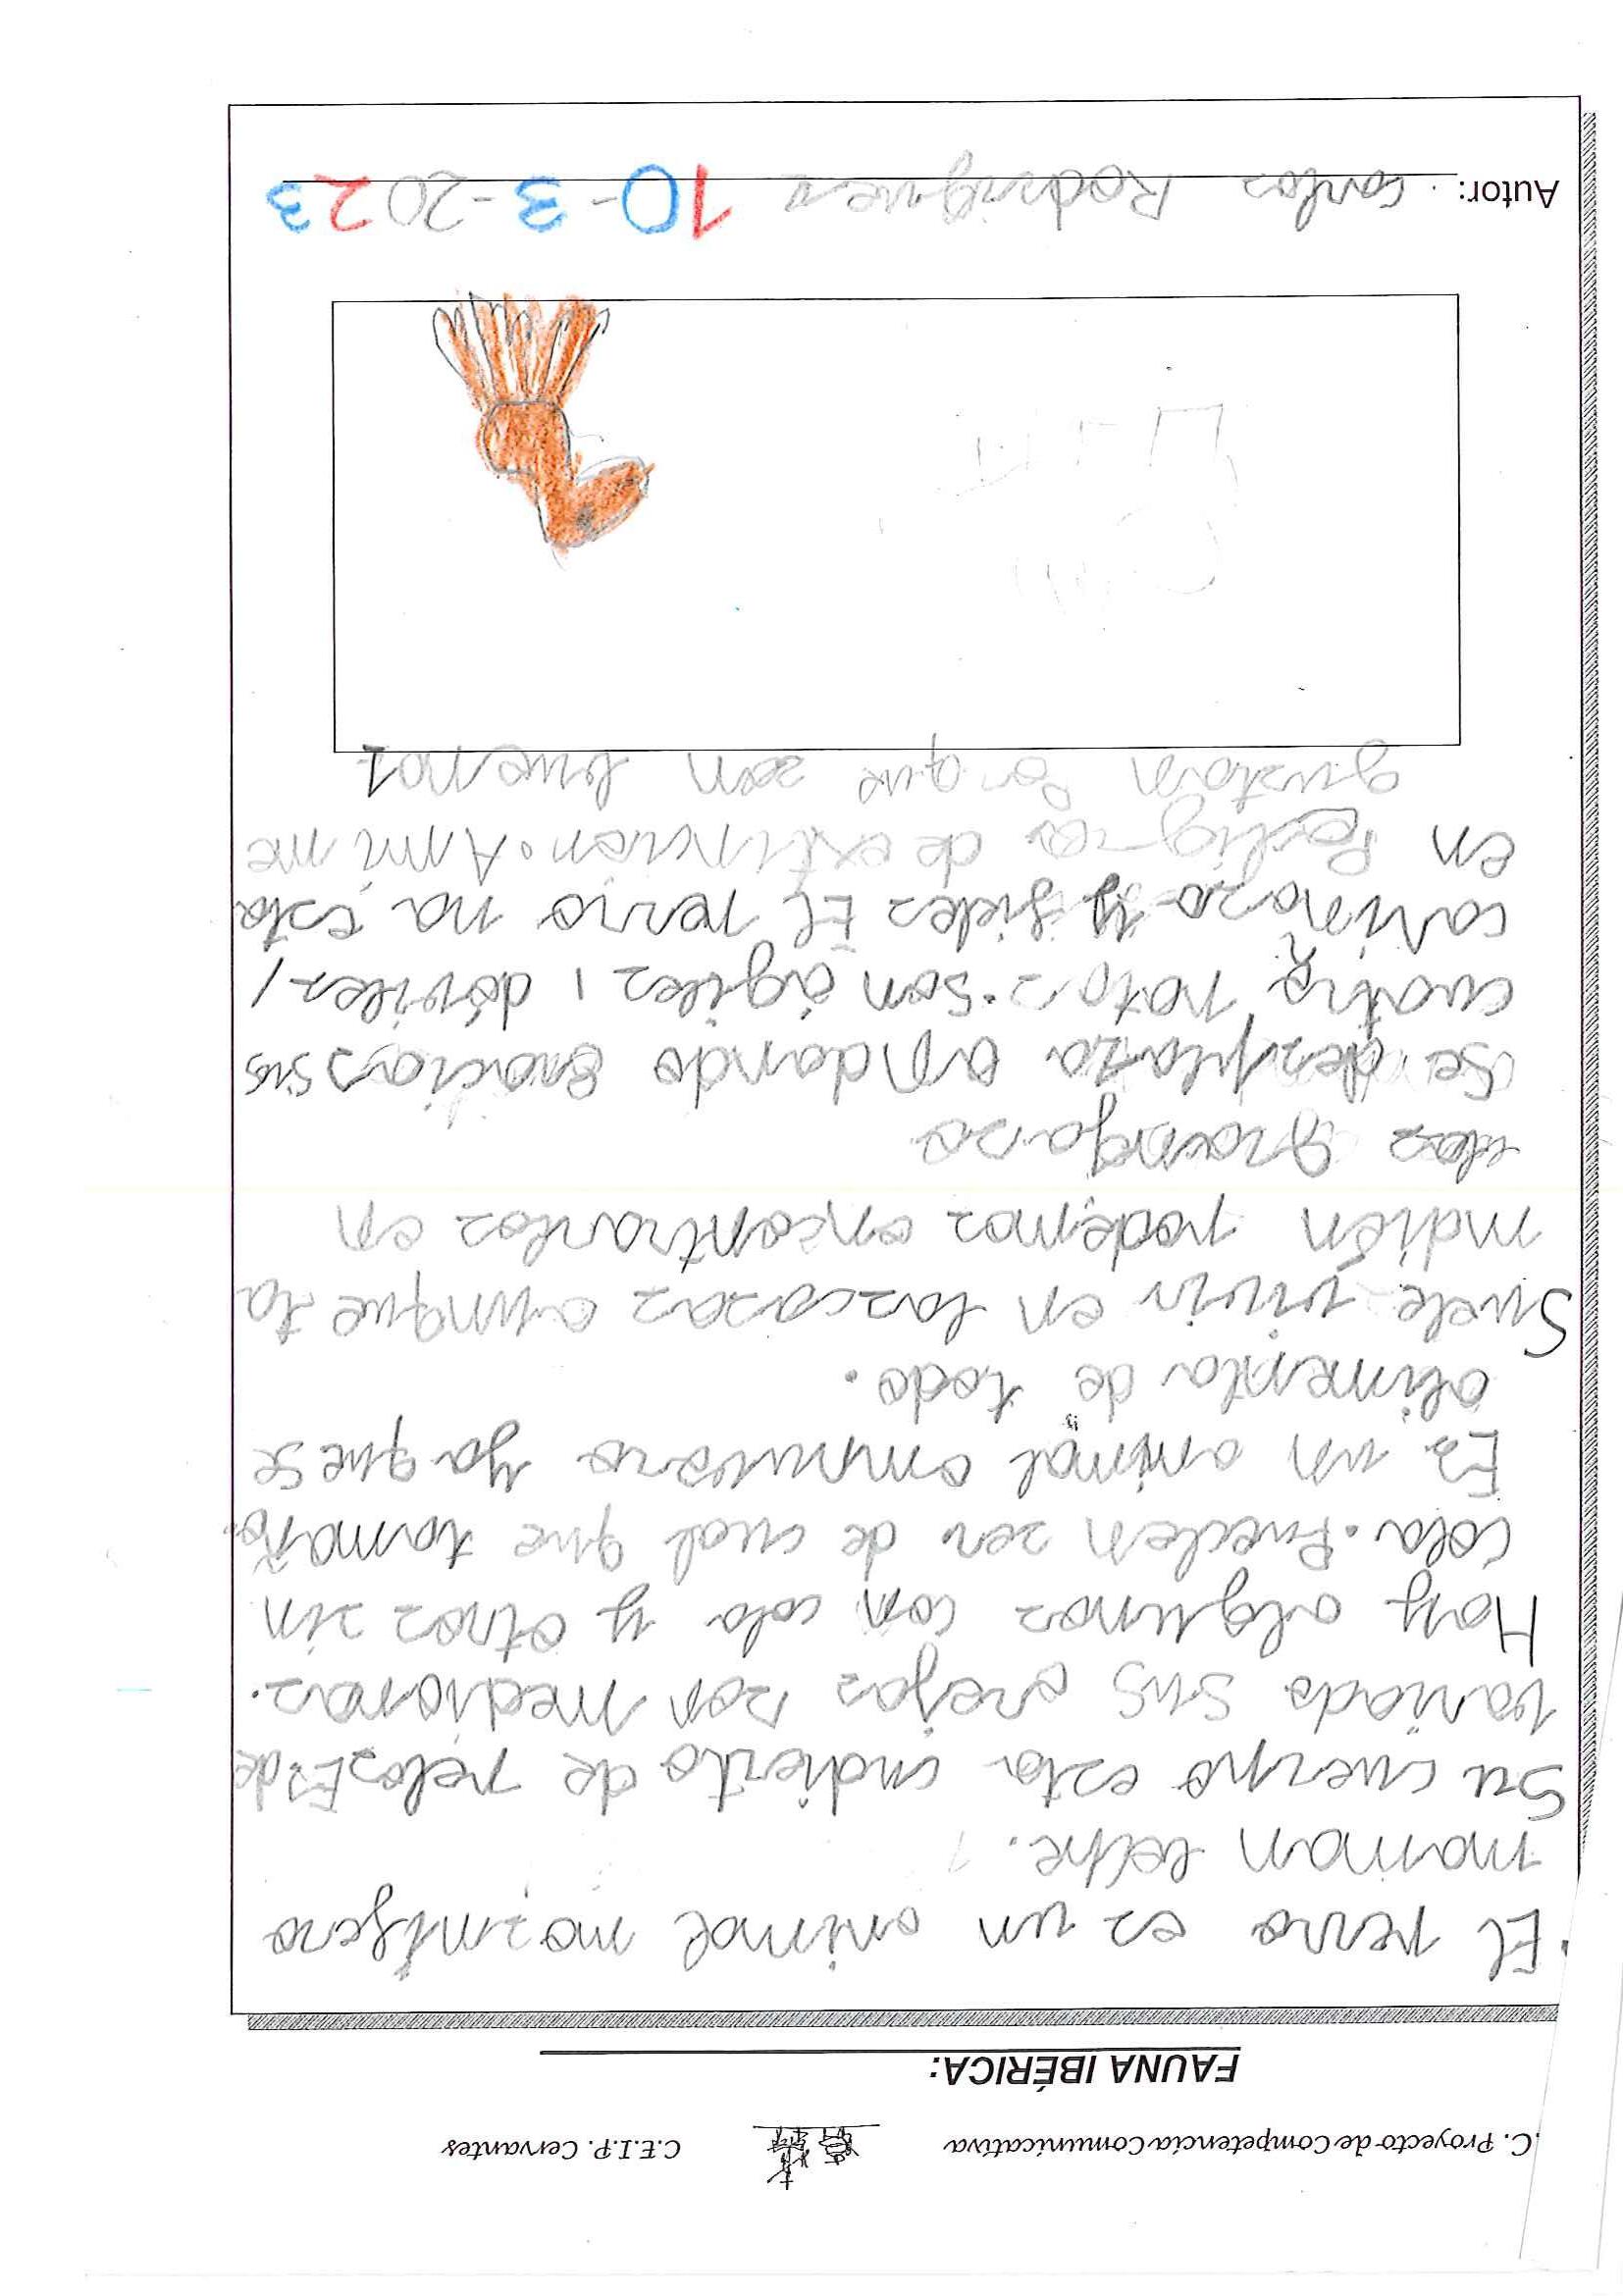 .C. Proyecto de Competencia Comunicativa C.E.I.P. Cervantes
FAUNA IBÉRICA:
El perro es un animal mazmifero
maman lethe.
Su cuerpo esta cudierto de pelos Es de
variado sus orejas son medianas.
Hay algunos con cola y otros sin
cola. Pueden ser de cual que tamaño.
Es un animal omnivoro ya que se
alimenta de todo.
Suele vivir en las casas aunque ta
mdién podemos encontrarlos en
las granjas
Se desplaza andando gracias sus
cuatro patas. Son ágiles, dóviles,
cariñoso y fieles El perro no esta
en Peligro de extinción. A mi me
gustan Porque son buenos
Autor: Carlos Rodriguez 10-3-2023